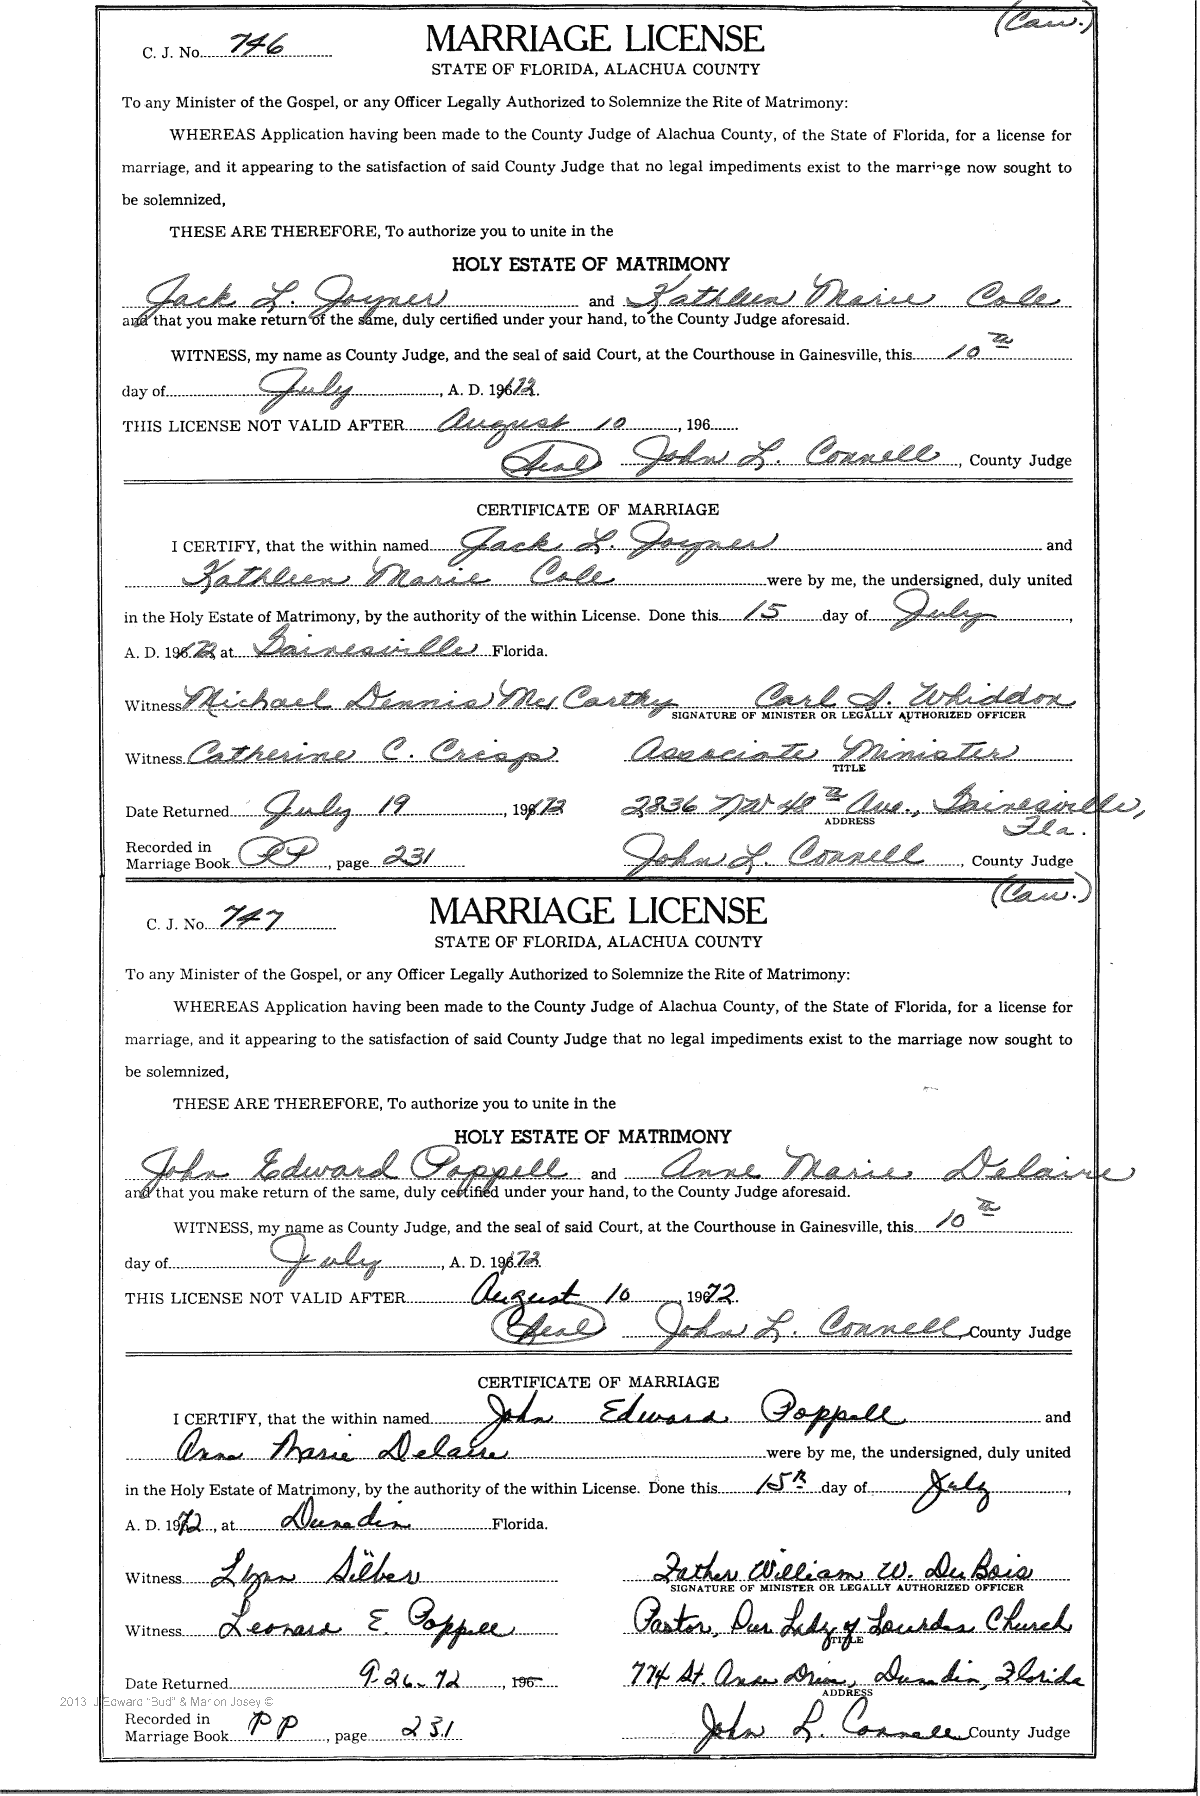 (Cau.)
C. J. No. 746 MARRIAGE LICENSE
STATE OF FLORIDA, ALACHUA COUNTY
To any Minister of the Gospel, or any Officer Legally Authorized to Solemnize the Rite of Matrimony:
WHEREAS Application having been made to the County Judge of Alachua County, of the State of Florida, for a license for
marriage, and it appearing to the satisfaction of said County Judge that no legal impediments exist to the marriage now sought to
be solemnized,
THESE ARE THEREFORE, To authorize you to unite in the
HOLY ESTATE OF MATRIMONY
Jack L. Joyner and Kathleen Marie Cole
and that you make return of the same, duly certified under your hand, to the County Judge aforesaid.
WITNESS, my name as County Judge, and the seal of said Court, at the Courthouse in Gainesville, this 10th
day of July, A. D. 1972.
THIS LICENSE NOT VALID AFTER August 10, 196
(Seal) John L. Connell, County Judge
CERTIFICATE OF MARRIAGE
I CERTIFY, that the within named Jack L. Joyner and
Kathleen Marie Cole were by me, the undersigned, duly united
in the Holy Estate of Matrimony, by the authority of the within License. Done this 15 day of July,
A. D. 1972, at Gainesville Florida.
Witness Michael Dennis McCarthy Carl S. Whiddon
SIGNATURE OF MINISTER OR LEGALLY AUTHORIZED OFFICER
Witness Catherine C. Crisp Associate Minister
TITLE
Date Returned July 19, 1972 2836 NW 48th Ave., Gainesville,
ADDRESS Fla.
Recorded in
Marriage Book PP, page 231 John L. Connell, County Judge
(Cau.)
C. J. No. 747 MARRIAGE LICENSE
STATE OF FLORIDA, ALACHUA COUNTY
To any Minister of the Gospel, or any Officer Legally Authorized to Solemnize the Rite of Matrimony:
WHEREAS Application having been made to the County Judge of Alachua County, of the State of Florida, for a license for
marriage, and it appearing to the satisfaction of said County Judge that no legal impediments exist to the marriage now sought to
be solemnized,
THESE ARE THEREFORE, To authorize you to unite in the
HOLY ESTATE OF MATRIMONY
John Edward Poppell and Anne Marie Delaire
and that you make return of the same, duly certified under your hand, to the County Judge aforesaid.
WITNESS, my name as County Judge, and the seal of said Court, at the Courthouse in Gainesville, this 10th
day of July, A. D. 1972.
THIS LICENSE NOT VALID AFTER August 10, 1972.
(Seal) John L. Connell, County Judge
CERTIFICATE OF MARRIAGE
I CERTIFY, that the within named John Edward Poppell and
Anne Marie Delaire were by me, the undersigned, duly united
in the Holy Estate of Matrimony, by the authority of the within License. Done this 15th day of July,
A. D. 1972, at Dunedin Florida.
Witness Lynn Silber Father William W. DuBois
SIGNATURE OF MINISTER OR LEGALLY AUTHORIZED OFFICER
Witness Leonard E. Poppell Pastor, Our Lady of Lourdes Church
TITLE
Date Returned 9-26-72, 196 774 St. Anne Drive, Dunedin, Florida
ADDRESS
2013 J Edward "Bud" & Marion Josey ©
Recorded in
Marriage Book PP, page 231 John L. Connell County Judge